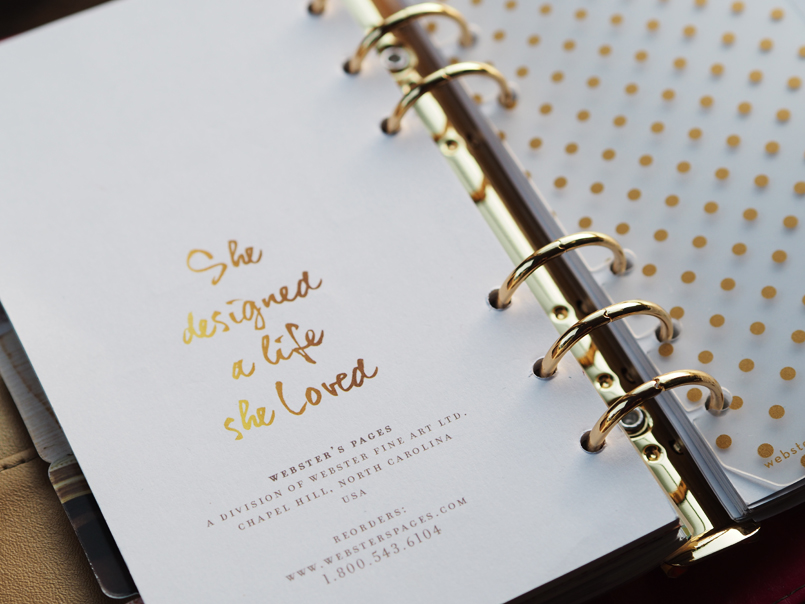 She
designed
a life
she loved
WEBSTER'S PAGES
A DIVISION OF WEBSTER FINE ART LTD.
CHAPEL HILL, NORTH CAROLINA
USA
REORDERS:
WWW.WEBSTERSPAGES.COM
1.800.543.6104